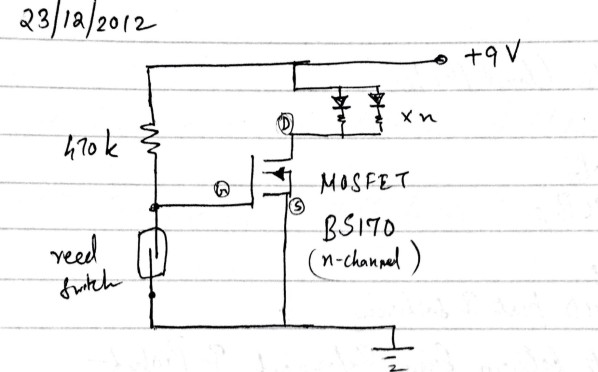 23/12/2012
+9V
470k
D
x n
G
MOSFET
S
BS170
(n-channel)
reed
switch